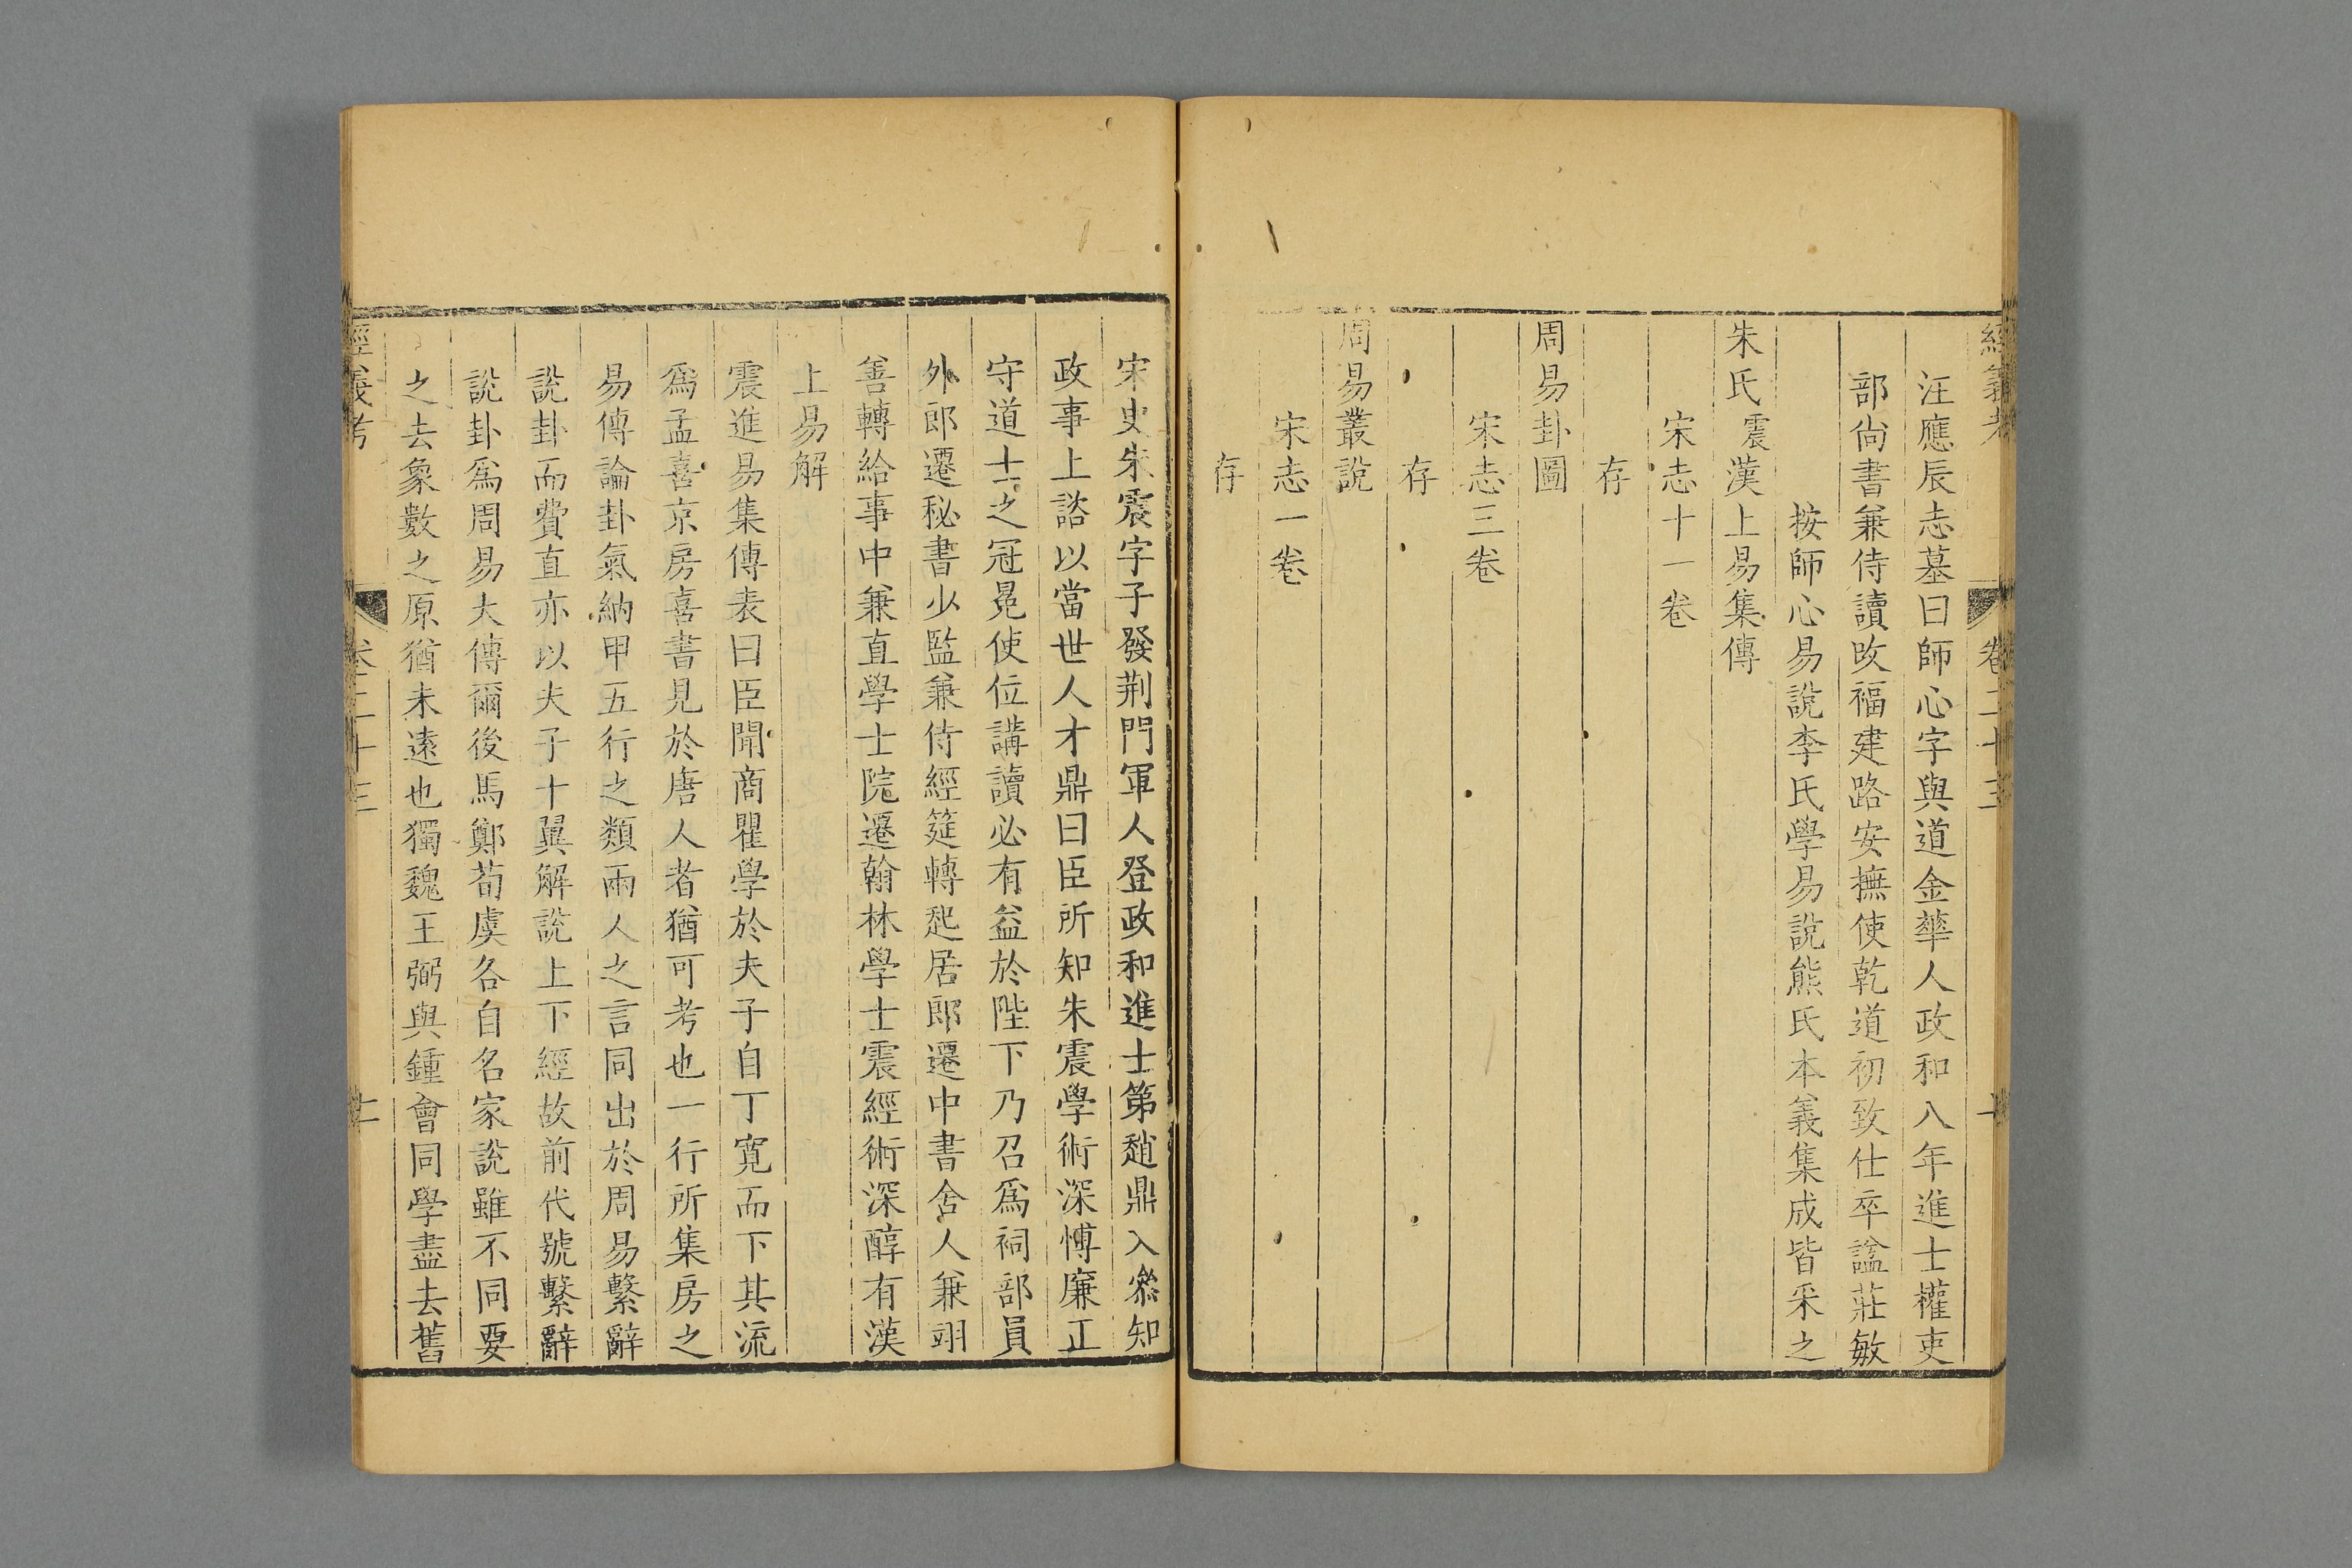 經義考 卷二十三
汪應辰志墓曰師心字與道金華人政和八年進士權吏
部尚書兼侍讀改福建路安撫使乾道初致仕卒謚莊敏
按師心易說李氏學易說熊氏本義集成皆采之
朱氏震漢上易集傳
宋志十一卷
存
周易卦圖
宋志三卷
存
周易叢說
宋志一卷
存
宋史朱震字子發荆門軍人登政和進士第趙鼎入叅知
政事上諮以當世人才鼎曰臣所知朱震學術深博廉正
守道士之冠冕使位講讀必有益於陛下乃召爲祠部員
外郎遷秘書少監兼侍經筵轉起居郎遷中書舍人兼翊
善轉給事中兼直學士院遷翰林學士震經術深醇有漢
上易解
震進易集傳表曰臣聞商瞿學於夫子自丁寬而下其流
爲孟喜京房喜書見於唐人者猶可考也一行所集房之
易傳論卦氣納甲五行之類兩人之言同出於周易繫辭
說卦而費直亦以夫子十翼解說上下經故前代號繫辭
說卦爲周易大傳爾後馬鄭荀虞各自名家說雖不同要
之去象數之原猶未遠也獨魏王弼與鍾會同學盡去舊
經義考 卷二十三